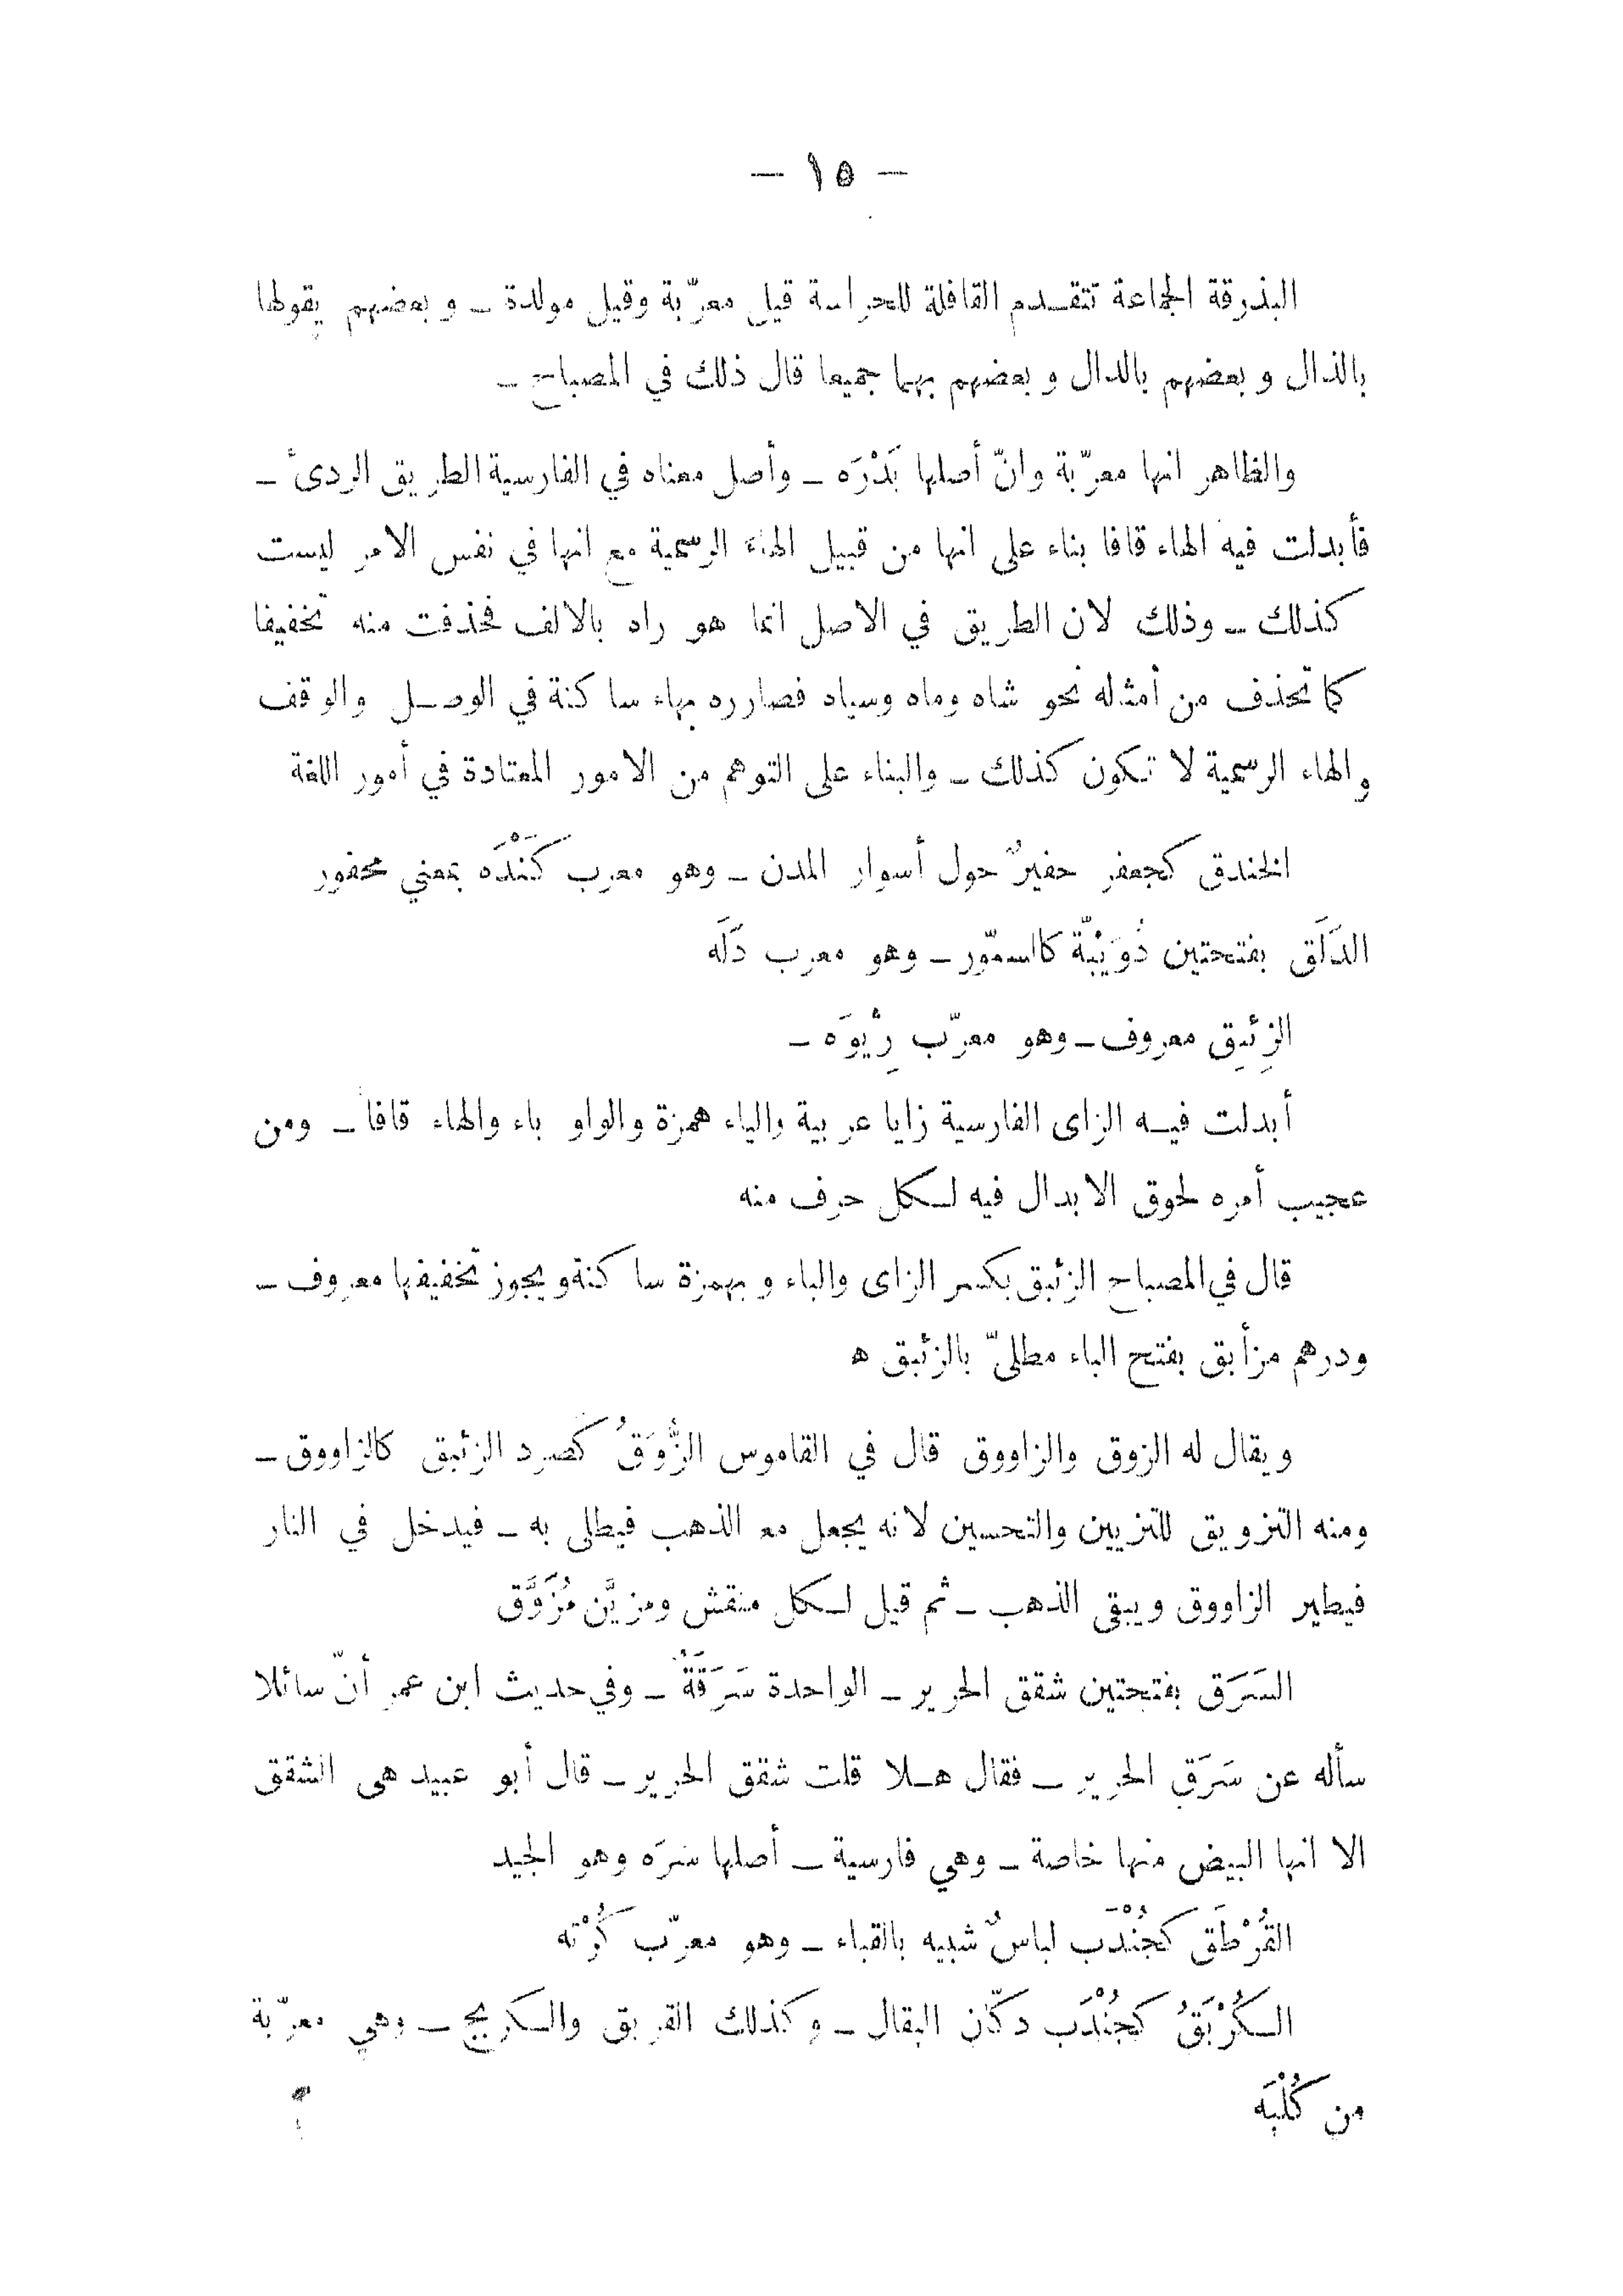 — ١٥ —
البذرقة الجماعة تتقدم القافلة للحراسة قيل معرّبة وقيل مولدة ـ وبعضهم يقولها
بالذال وبعضهم بالدال وبعضهم بهما جميعا قال ذلك في المصباح ـ
والظاهر انها معرّبة وانّ أصلها بَدْرَه ـ وأصل معناه في الفارسية الطريق الردىٔ ـ
فأبدلت فيه الهاء قافا بناء على انها من قبيل الهاء الرسمية مع انها في نفس الامر ليست
كذلك ـ وذلك لان الطريق في الاصل انما هو راه بالالف فحذفت منه تخفيفا
كما تحذف من أمثاله نحو شاه وماه وسياه فصار ره بهاء ساكنة في الوصل والوقف
والهاء الرسمية لا تكون كذلك ـ والبناء على التوهم من الامور المعتادة في أمور اللغة
الخندق كجعفر حفيرٌ حول أسوار المدن ـ وهو معرب كَنْدَه بمعني محفور
الدَلَق بفتحتين دُوَيْبّة كالسمّور ـ وهو معرب دَلَه
الزِئبِق معروف ـ وهو معرّب رِيْوَه ـ
أبدلت فيه الزاى الفارسية زايا عربية والياء همزة والواو باء والهاء قافا ـ ومن
عجيب أمره لحوق الابدال فيه لكل حرف منه
قال في المصباح الزئبق بكسر الزاى والباء وبهمزة ساكنة ويجوز تخفيفها معروف ـ
ودرهم مزأبق بفتح الباء مطلىّ بالزئبق ه
ويقال له الزوق والزاووق قال في القاموس الزُّوَقُ كصرد الزئبق كالزاووق ـ
ومنه التزويق للتزيين والتحسين لانه يجعل مع الذهب فيطلى به ـ فيدخل في النار
فيطير الزاووق ويبقى الذهب ـ ثم قيل لكل منقش ومزيَّن مُزَوَّق
السَرَق بفتحتين شقق الحرير ـ الواحدة سَرَقَةٌ ـ وفي حديث ابن عمر أنّ سائلا
سأله عن سَرَق الحرير ـ فقال هلا قلت شقق الحرير ـ قال أبو عبيد هى الشقق
الا انها البيض منها خاصة ـ وهي فارسية ـ أصلها سَرَه وهو الجيد
القُرْطَق كجُنْدَب لباسٌ شبيه بالقباء ـ وهو معرّب كُرْته
الكُرْبَقُ كجُنْدَب دكّان البقال ـ وكذلك القربق والكربج ـ وهي معرّبة
من كُلْبَه